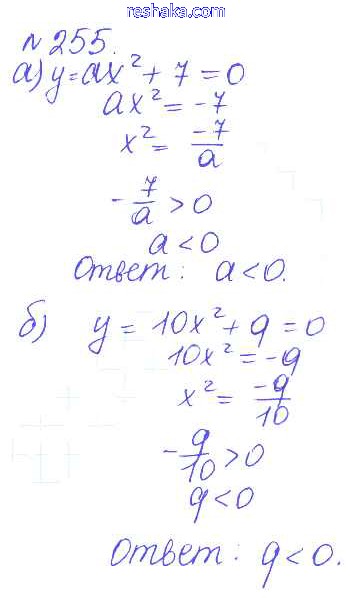 www.
reshaka.com
№ 255.
а) y = ax² + 7 = 0
ax² = -7
x² = -7/a
-7/a > 0
a < 0
Ответ: a < 0.
б) y = 10x² + q = 0
10x² = -q
x² = -q/10
-q/10 > 0
q < 0
Ответ: q < 0.